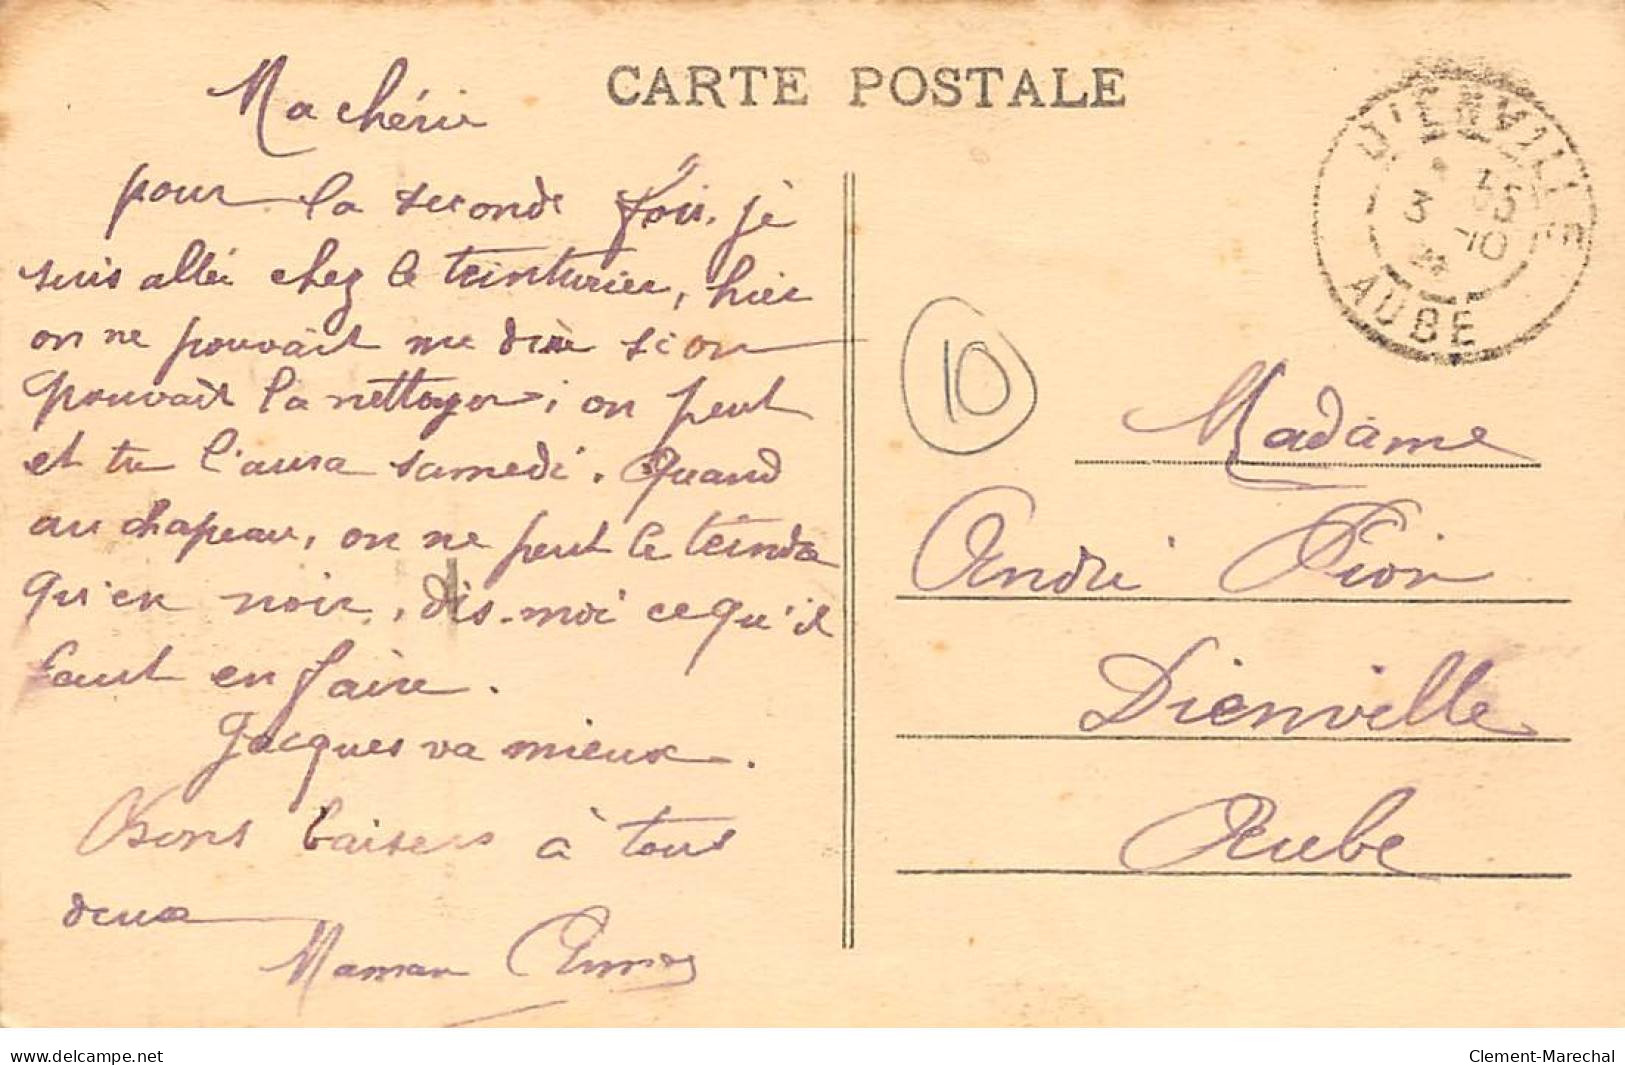 CARTE POSTALE
Ma chérie
pour la seconde fois, je
suis allée chez le teinturier, hier
on ne pouvait me dire si on
pouvait la nettoyer, on peut
et tu l'aura samedi. Quand
au chapeau, on ne peut le teindre
qu'en noir, dis-moi ce qu'il
faut en faire.
Jacques va mieux.
Bons baisers à tous
deux
Maman
DIENVILLE
3 -10
AUBE
10
Madame
André
Dienville
Aube
www.delcampe.net
Clement-Marechal